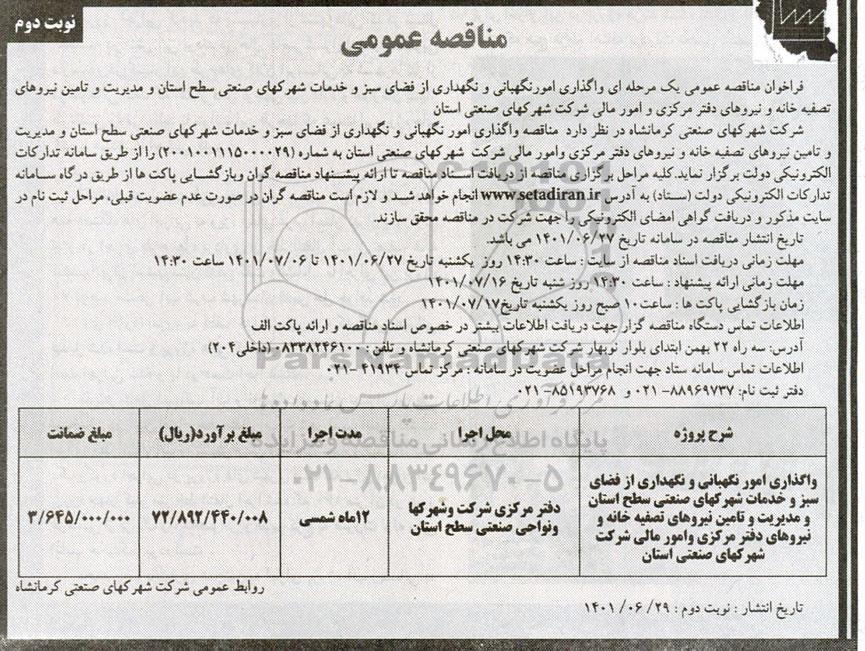 نوبت دوم
مناقصه عمومی
فراخوان مناقصه عمومی یک مرحله ای واگذاری امورنگهبانی و نگهداری از فضای سبز و خدمات شهرکهای صنعتی سطح استان و مدیریت و تامین نیروهای
تصفیه خانه و نیروهای دفتر مرکزی و امور مالی شرکت شهرکهای صنعتی استان
شرکت شهرکهای صنعتی کرمانشاه در نظر دارد مناقصه واگذاری امور نگهبانی و نگهداری از فضای سبز و خدمات شهرکهای صنعتی سطح استان و مدیریت
و تامین نیروهای تصفیه خانه و نیروهای دفتر مرکزی وامور مالی شرکت شهرکهای صنعتی استان به شماره (۲۰۰۱۰۰۱۱۱۵۰۰۰۰۲۹) را از طریق سامانه تدارکات
الکترونیکی دولت برگزار نماید.کلیه مراحل برگزاری مناقصه از دریافت اسناد مناقصه تا ارائه پیشنهاد مناقصه گران وبازگشایی پاکت ها از طریق درگاه سامانه
تدارکات الکترونیکی دولت (ستاد) به آدرس www.setadiran.ir انجام خواهد شد و لازم است مناقصه گران در صورت عدم عضویت قبلی، مراحل ثبت نام در
سایت مذکور و دریافت گواهی امضای الکترونیکی را جهت شرکت در مناقصه محقق سازند.
تاریخ انتشار مناقصه در سامانه تاریخ ۱۴۰۱/۰۶/۲۷ می باشد.
مهلت زمانی دریافت اسناد مناقصه از سایت : ساعت ۱۴:۳۰ روز یکشنبه تاریخ ۱۴۰۱/۰۶/۲۷ تا ۱۴۰۱/۰۷/۰۶ ساعت ۱۴:۳۰
مهلت زمانی ارائه پیشنهاد : ساعت ۱۴:۳۰ روز شنبه تاریخ ۱۴۰۱/۰۷/۱۶
زمان بازگشایی پاکت ها : ساعت۱۰ صبح روز یکشنبه تاریخ۱۴۰۱/۰۷/۱۷
اطلاعات تماس دستگاه مناقصه گزار جهت دریافت اطلاعات بیشتر در خصوص اسناد مناقصه و ارائه پاکت الف
آدرس: سه راه ۲۲ بهمن ابتدای بلوار نوبهار شرکت شهرکهای صنعتی کرمانشاه و تلفن : ۰۸۳۳۸۲۴۶۱۰۰ (داخلی۲۰۴)
اطلاعات تماس سامانه ستاد جهت انجام مراحل عضویت در سامانه : مرکز تماس ۴۱۹۳۴ -۰۲۱
دفتر ثبت نام: ۸۸۹۶۹۷۳۷- ۰۲۱ و ۸۵۱۹۳۷۶۸- ۰۲۱
ParsNamadData
مرکز فرآوری اطلاعات پارس نماد داده ها
پایگاه اطلاع رسانی مناقصه و مزایده
۰۲۱-۸۸۳۴۹۶۷۰-۵
شرح پروژه محل اجرا مدت اجرا مبلغ برآورد(ریال) مبلغ ضمانت
واگذاری امور نگهبانی و نگهداری از فضای
سبز و خدمات شهرکهای صنعتی سطح استان
و مدیریت و تامین نیروهای تصفیه خانه و
نیروهای دفتر مرکزی وامور مالی شرکت
شهرکهای صنعتی استان
دفتر مرکزی شرکت وشهرکها
ونواحی صنعتی سطح استان
۱۲ماه شمسی
۷۲/۸۹۲/۴۴۰/۰۰۸
۳/۶۴۵/۰۰۰/۰۰۰
روابط عمومی شرکت شهرکهای صنعتی کرمانشاه
تاریخ انتشار : نوبت دوم : ۱۴۰۱/۰۶/۲۹